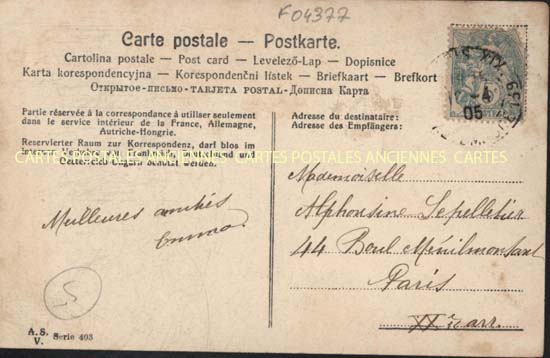 F04377
Carte postale — Postkarte.
Cartolina postale — Post card — Levelező-Lap — Dopisnice
Karta korespondencyjna — Korespondenční lístek — Briefkaart — Brefkort
Открытое-письмо-Tarjeta postal-Дописна Карта
Partie réservée à la correspondance à utiliser seulement
dans le service intérieur de la France, Allemagne,
Autriche-Hongrie.
Reservierter Raum zur Korrespondenz, darf blos im
CARTES POSTALES ANCIENNES CARTES POSTALES ANCIENNES CARTES
Oesterreich-Ungarn benützt werden.
Meilleures amitiés
Emma.
5
A.S.
V. Serie 403
Adresse du destinataire:
Adresse des Empfängers:
Mademoiselle
Alphonsine Lepelletier
44 Boul Ménilmontant
Paris
XIe arr.
4
05